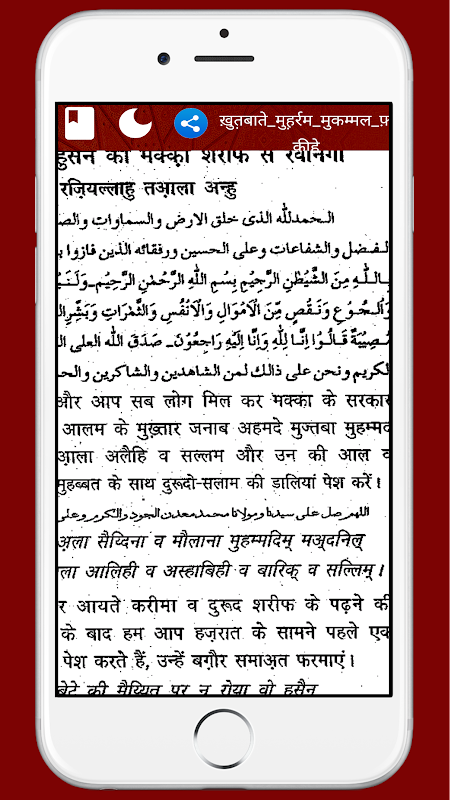 ख़ुतबाते_मुहर्रम_मुकम्मल_फ़
कीहे
हुसैन की मक्का शरीफ से रवानगी
रज़ियल्लाहु तआ़ला अन्हु
الحمدلله الذى خلق الارض والسماوات والص
لفضل والشفاعات وعلى الحسين ورفقائه الذين فازوا ب
بالله مِنَ الشَّيْطٰنِ الرَّجِيْمِ بِسْمِ اللّٰهِ الرَّحْمٰنِ الرَّحِيْمِ۔ وَلَنَب
وَالْجُوْعِ وَنَقْصٍ مِّنَ الْاَمْوَالِ وَالْاَنْفُسِ وَالثَّمَرَاتِ وَبَشِّرِال
مُصِيْبَةٌ قَالُوْا اِنَّا لِلّٰهِ وَاِنَّا اِلَيْهِ رَاجِعُوْنَ۔ صَدَقَ اللّٰه العلى ال
الكريم ونحن على ذالك لمن الشاهدين والشاكرين والح
और आप सब लोग मिल कर मक्का के सरकार
आलम के मुख़्तार जनाब अहमदे मुज्तबा मुहम्मद
आ़ला अलैहि व सल्लम और उन की आल व
मुहब्बत के साथ दुरूदो-सलाम की डालियां पेश करें।
اللهم صل على سيدنا ومولانا محمد معدن الجود والكرم وعلى
अ़ला सैय्दिना व मौलाना मुहम्मदिम् मअ़्दनिल्
ला आलिही व अस्हाबिही व बारिक् व सल्लिम्।
र आयते करीमा व दुरूद शरीफ के पढ़ने की
के बाद हम आप हज़रात के सामने पहले एक
पेश करते हैं, उन्हें बग़ौर समाअ़त फरमाएं।
बेटे की मैय्यित पर न रोया वो हुसैन